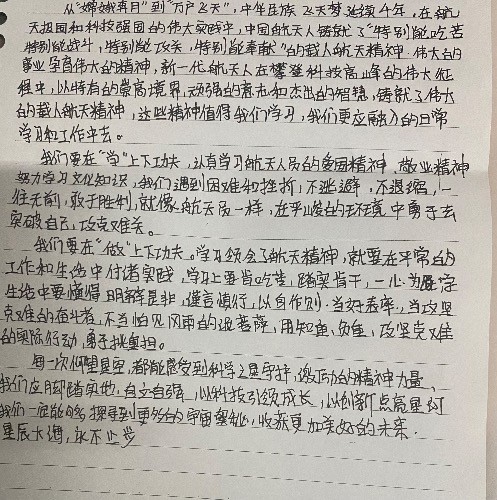 从"嫦娥奔月"到"万户飞天",中华民族飞天梦延续千年,在航
天报国和科技强国的伟大实践中,中国航天人铸就了"特别能吃苦
特别能战斗,特别能攻关,特别能奉献"的载人航天精神.伟大的
事业孕育伟大的精神,新一代航天人在攀登科技高峰的伟大征
程中,以特有的崇高境界,顽强的意志和杰出的智慧,铸就了伟大
的载人航天精神,这些精神值得我们学习,我们更应融入的日常
学习和工作中去。
我们要在"学"上下功夫,认真学习航天人员的爱国精神,敬业精神
努力学习文化知识,我们遇到困难和挫折,不逃避,不退缩,一
往无前,敢于胜利,就像航天员一样,在严峻的环境中勇于去
突破自己,攻克难关。
我们要在"做"上下功夫.学习领会了航天精神,就要在平常的
工作和生活中付诸实践,学习上要肯吃苦,踏实肯干,一心为
生活中要懂得明辨是非,谨言慎行,以身作则.当好表率,当攻坚
克难的奋斗者,不当怕见风雨的泥菩萨,用知重,负重,攻坚克难
的实际行动,勇于挑重担。
每一次仰望星空,都能感受到科学之美守护,激励的精神力量,
我们应脚踏实地,自立自强,以科技引领成长,以创新点亮星河
我们一定能够探寻到更多的宇宙奥秘,收获更加美好的未来.
星辰大海,永不止步